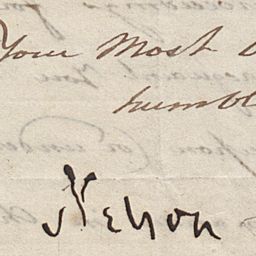 Your Most
humbl
Nelson